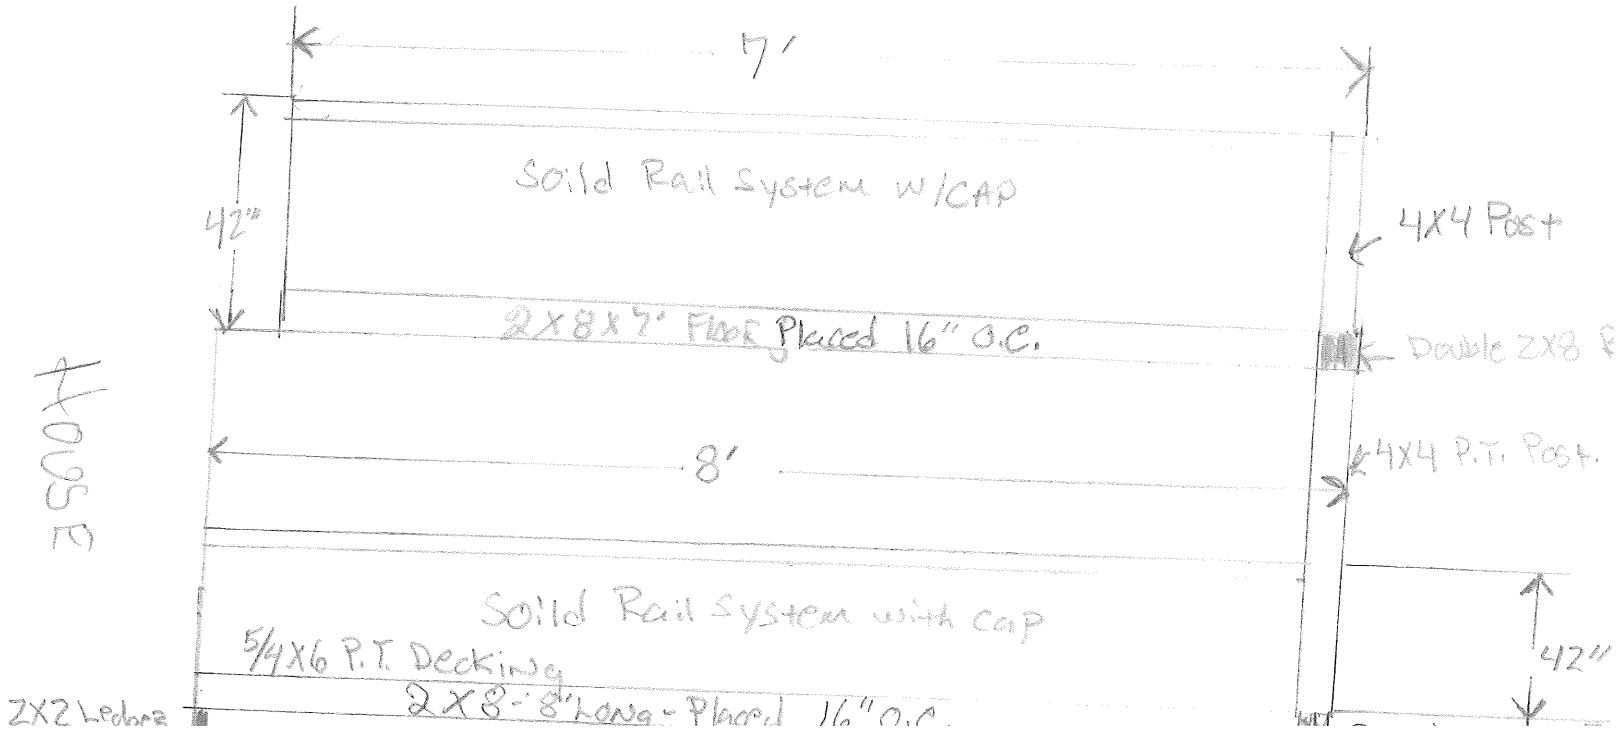 7'
Soild Rail System w/CAP
42"
4X4 Post
2 X 8 X 7' Floor Placed 16" O.C.
Double 2X8
HOUSE
8'
4X4 P.T. Post.
Soild Rail System with cap
5/4X6 P.T. Decking
42"
2X8-8' Long-Placed 16" O.C.
2X2